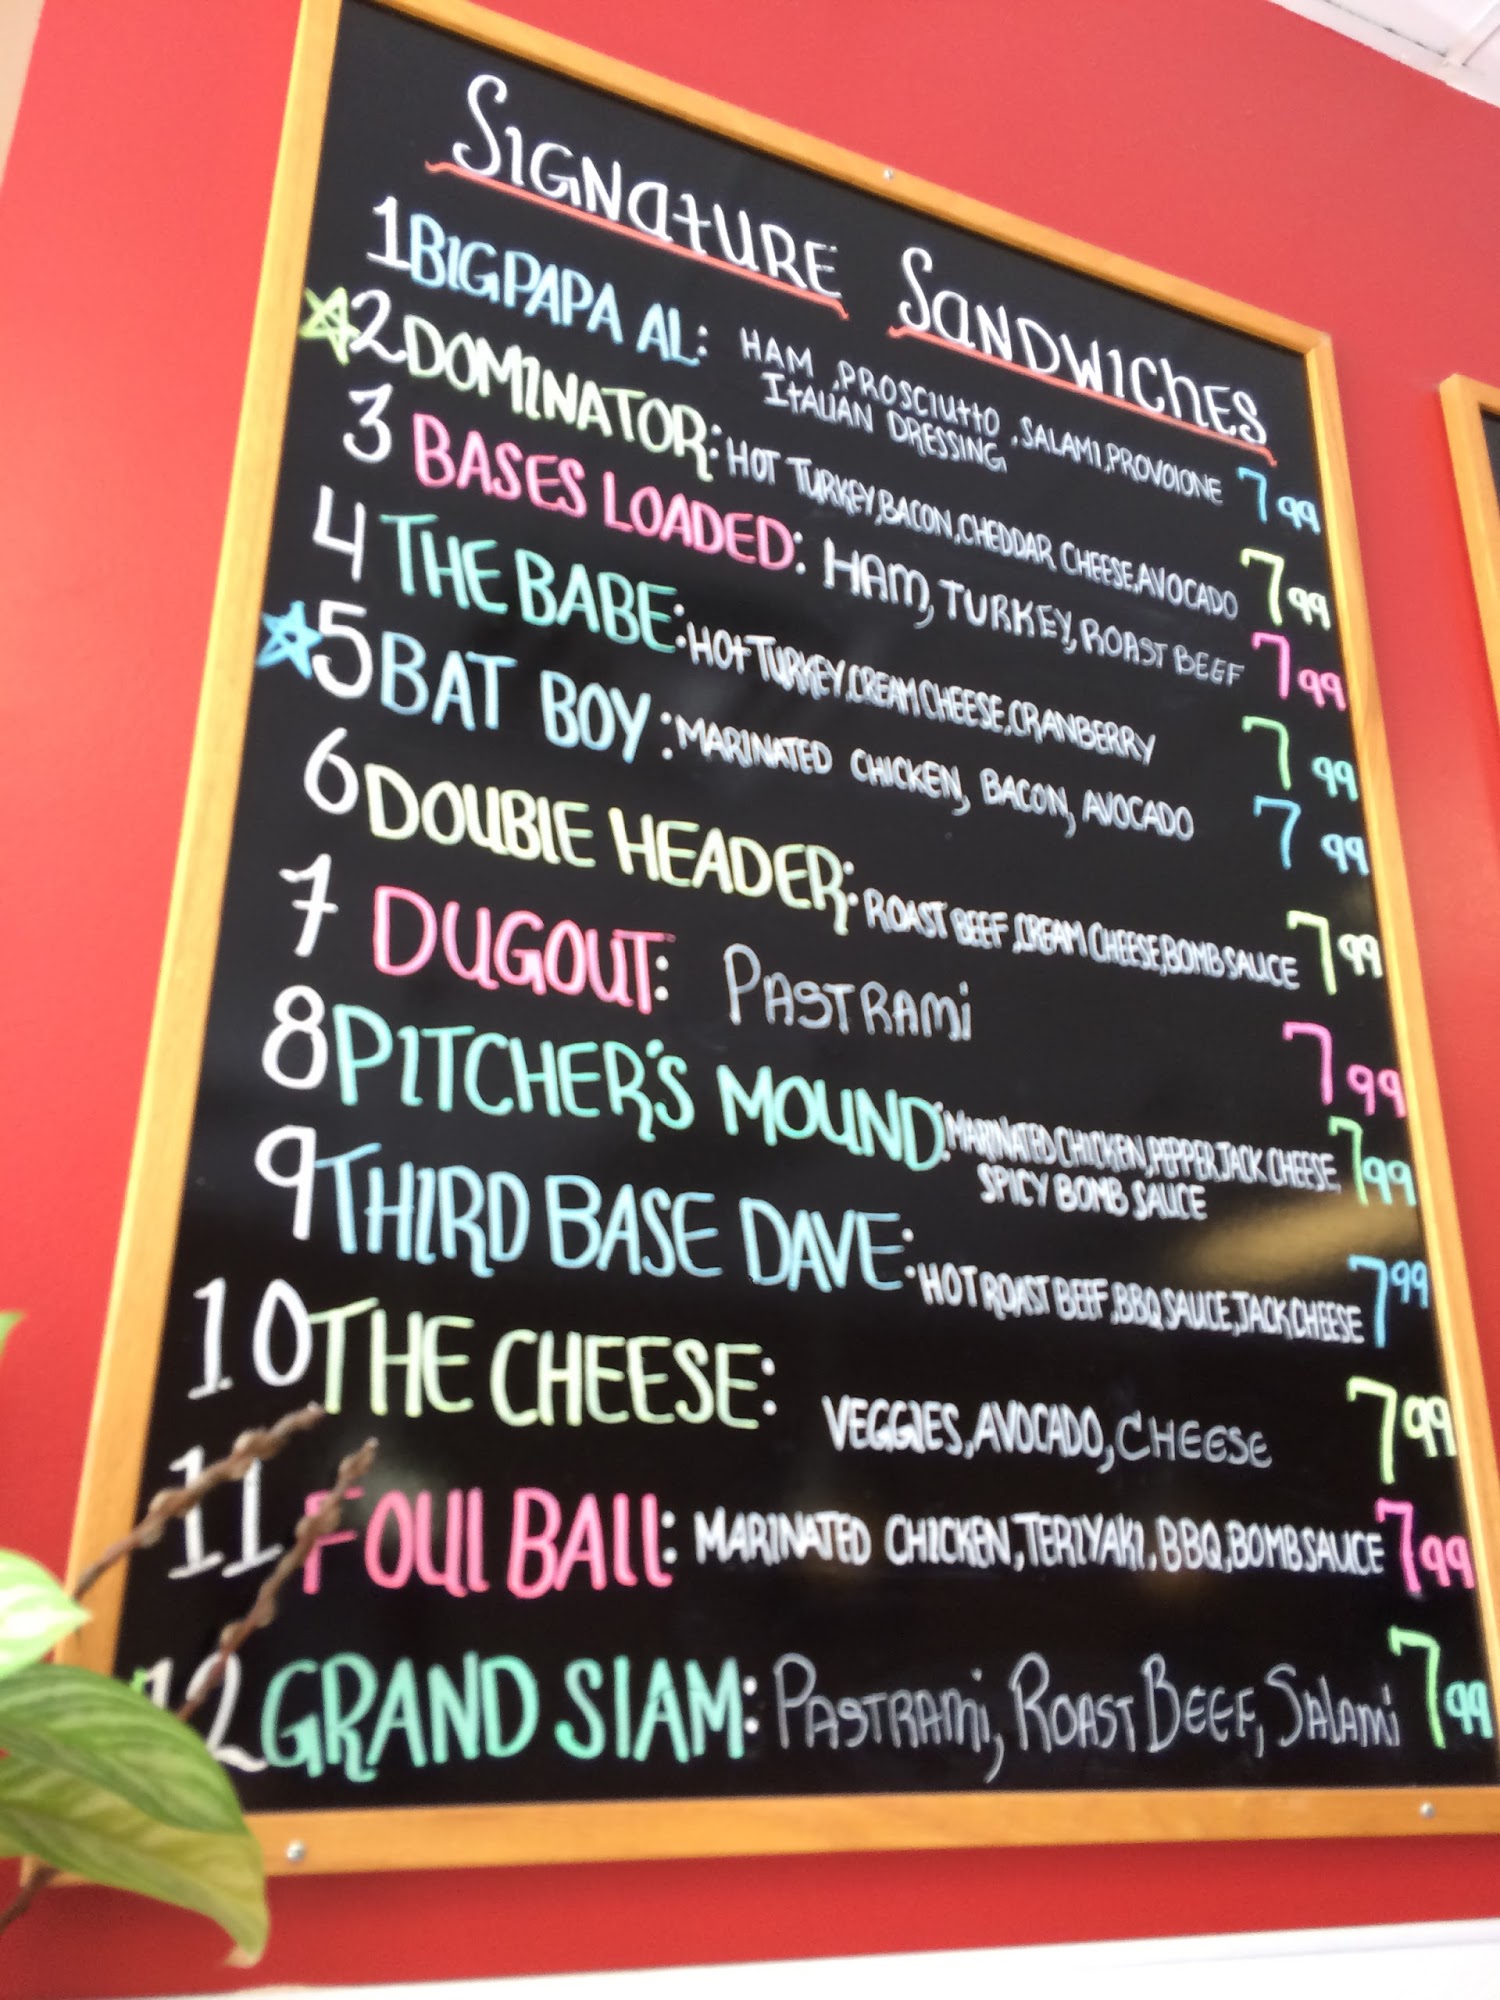 SIGNATURE SANDWICHES
1 BIG PAPA AL: HAM, PROSCIUTTO, SALAMI, PROVOLONE 7 99
ITALIAN DRESSING
2 DOMINATOR: HOT TURKEY, BACON, CHEDDAR CHEESE, AVOCADO 7 99
3 BASES LOADED: HAM, TURKEY, ROAST BEEF 7 99
4 THE BABE: HOT TURKEY, CREAM CHEESE, CRANBERRY 7 99
5 BAT BOY: MARINATED CHICKEN, BACON, AVOCADO 7 99
6 DOUBLE HEADER: ROAST BEEF, CREAM CHEESE, BOMB SAUCE 7 99
7 DUGOUT: PASTRAMI 7 99
8 PITCHER'S MOUND: MARINATED CHICKEN, PEPPER JACK CHEESE, 7 99
SPICY BOMB SAUCE
9 THIRD BASE DAVE: HOT ROAST BEEF, BBQ SAUCE, JACK CHEESE 7 99
10 THE CHEESE: VEGGIES, AVOCADO, CHEESE 7 99
11 FOUL BALL: MARINATED CHICKEN, TERIYAKI, BBQ, BOMB SAUCE 7 99
12 GRAND SLAM: PASTRAMI, ROAST BEEF, SALAMI 7 99